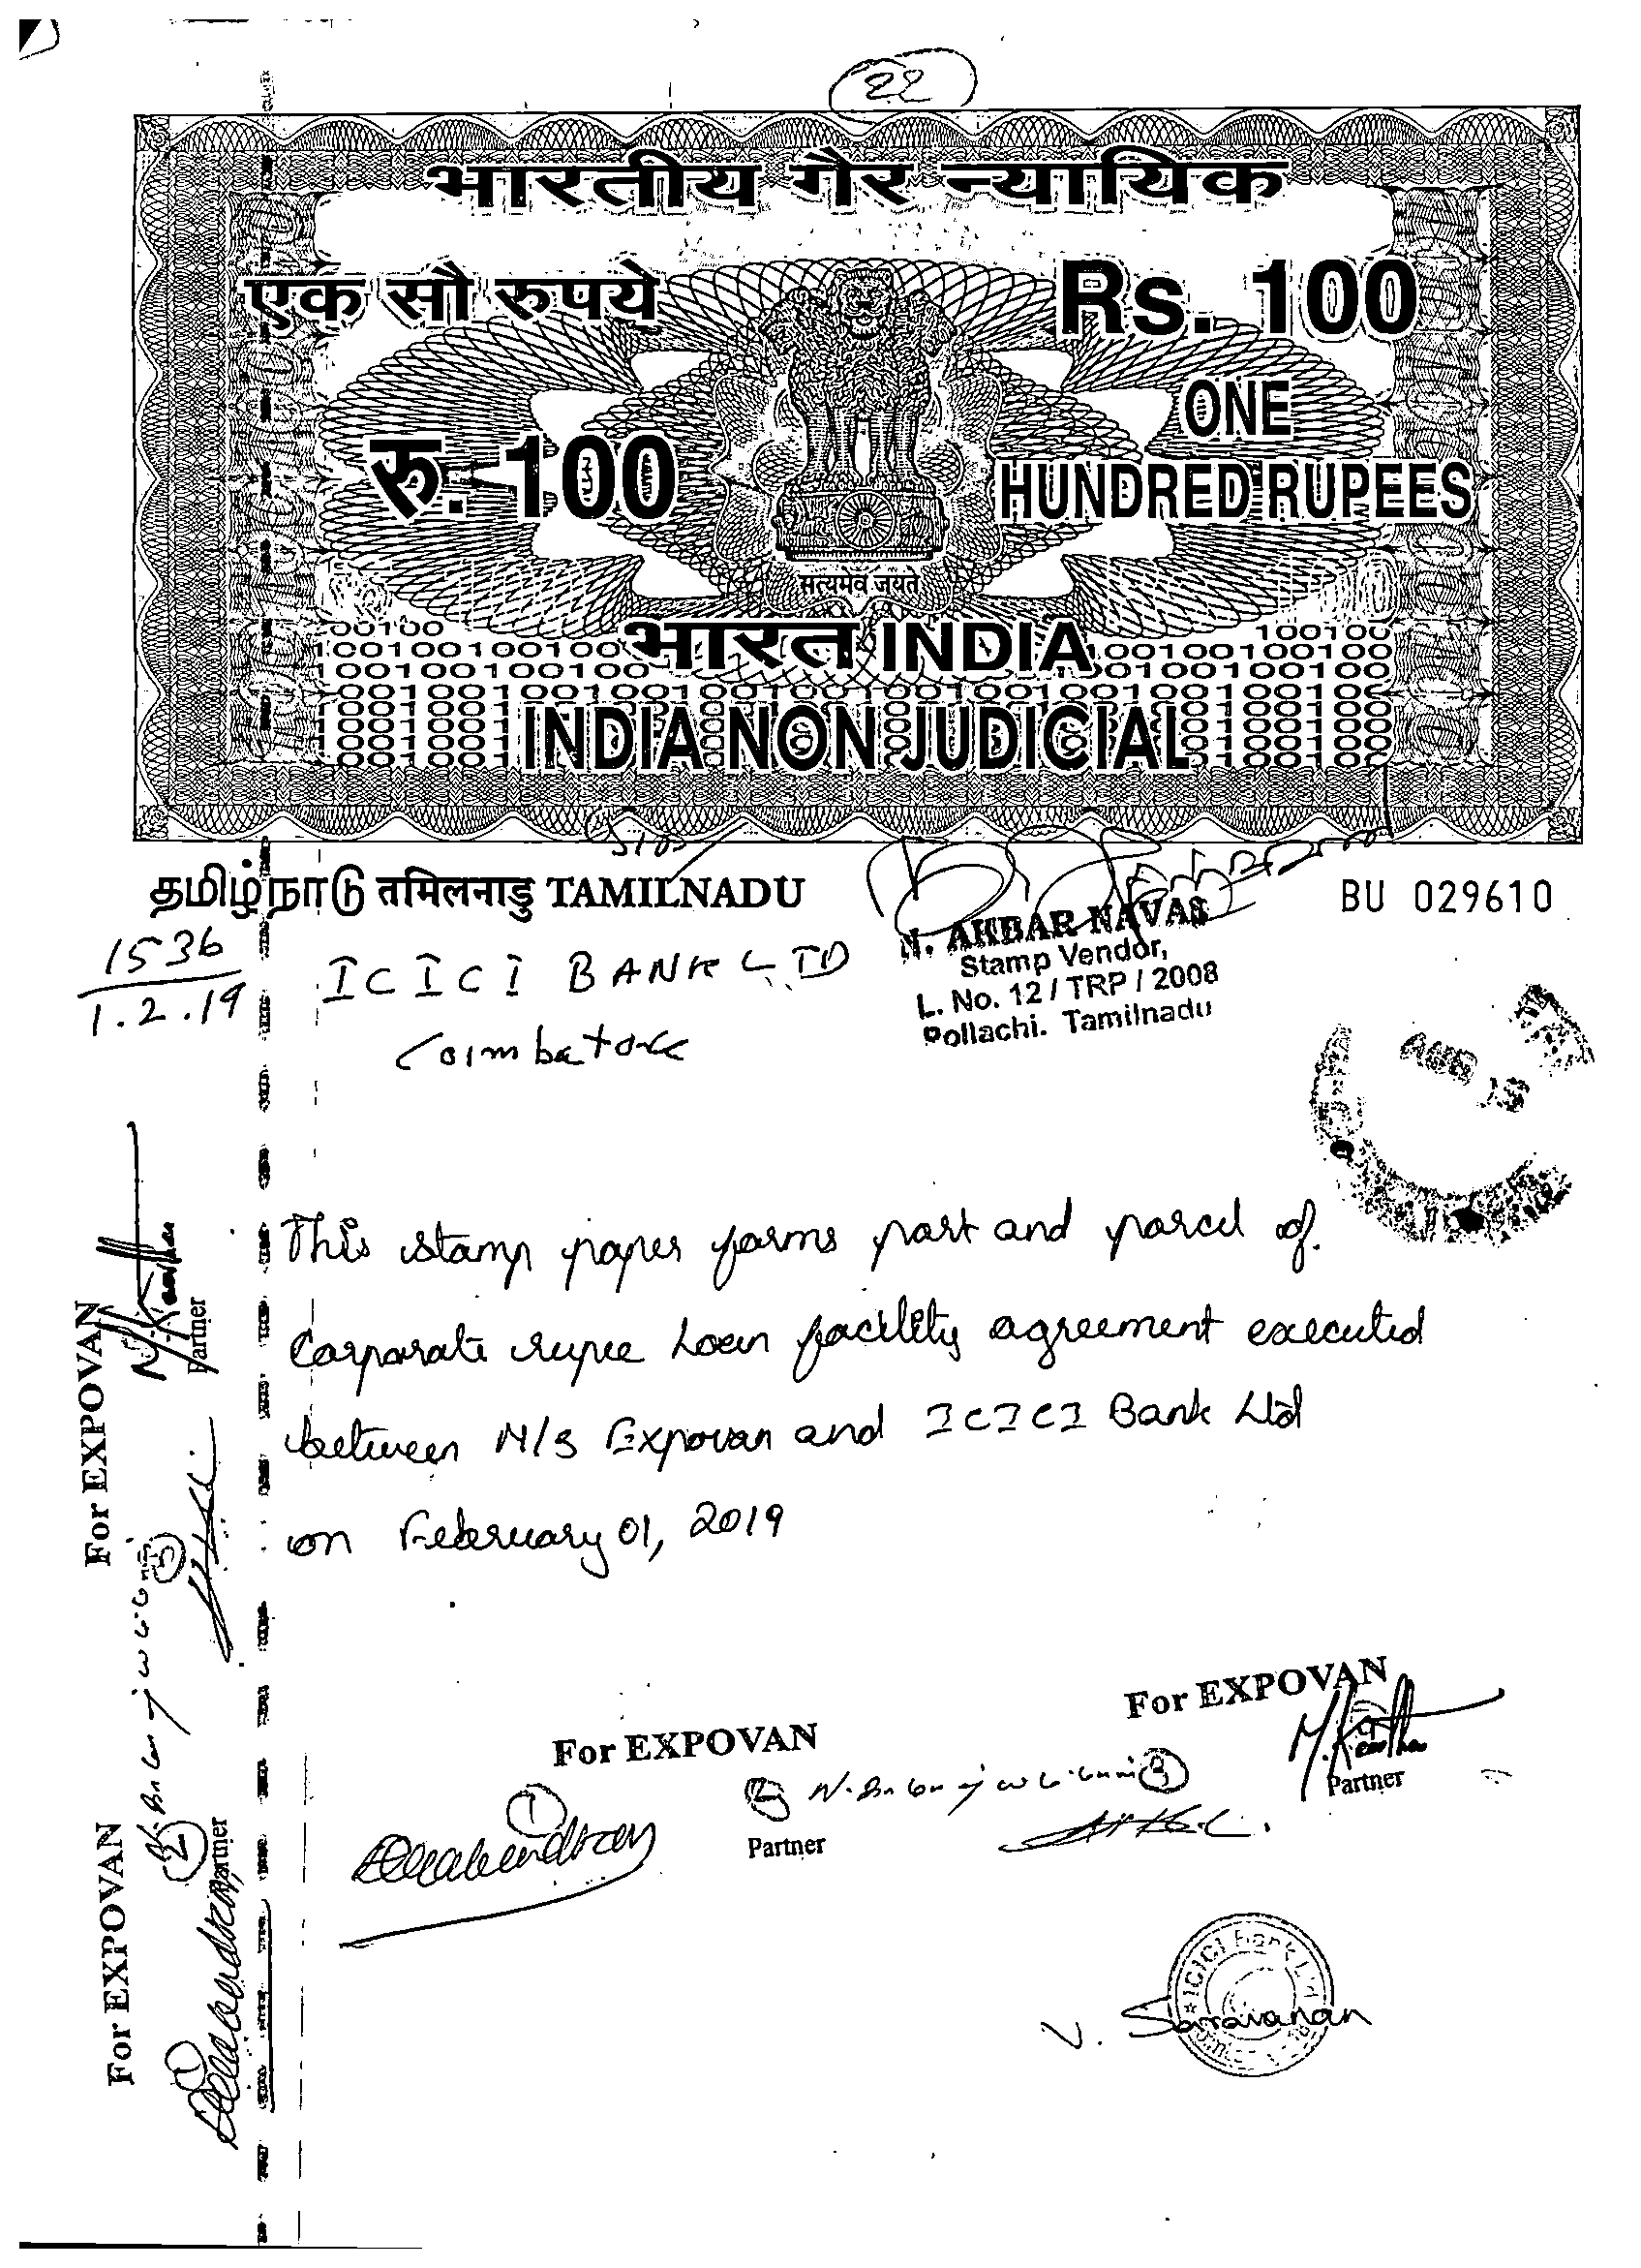 22
भारतीय गैर न्यायिक
एक सौ रुपये
Rs. 100
रु. 100
ONE
HUNDRED RUPEES
सत्यमेव जयते
भारत INDIA
INDIA NON JUDICIAL
தமிழ்நாடு तमिलनाडु TAMILNADU
BU 029610
1536
1.2.19
ICICI BANK LTD
Coimbatore
N. AKBAR NAVAS
Stamp Vendor,
L. No. 12 / TRP / 2008
Pollachi. Tamilnadu
This stamp paper forms part and parcel of
Corporate rupee Loan facility agreement executed
between M/S Expovan and ICICI Bank Ltd
on February 01, 2019
For EXPOVAN
M. Kavitha
Partner
For EXPOVAN
Partner
For EXPOVAN
1
2
Partner
3
For EXPOVAN
Partner
ICICI Bank Ltd
V. Saravanan